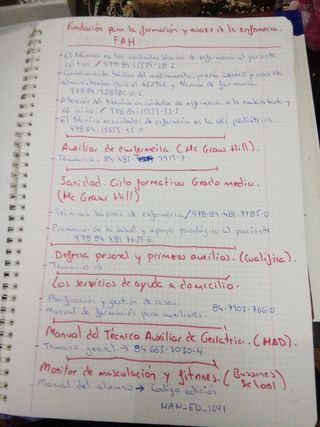 Fundación para la formación y avance de la enfermería.
FAH.
- El técnico en los cuidados básicos de enfermería al paciente
crítico / 978.84.15559.38.2
- Conocimiento básico del medicamento, previo
administrativos para el y técnico de farmacia.
- Atención del técnico en cuidados de enfermería a la
al niño. / 978.84.15559.53.5
- El técnico en cuidados de enfermería en la UCI pediátrica.
978.84.15559.45.0
Auxiliar de enfermería (Mc Graw Hill).
- Temario. 84.481.9919.7.
Sanidad. Ciclo formativo Grado medio.
(Mc Graw Hill)
- Técnicas básicas de enfermería / 978.84.481.7785.0.
- Promoción de la salud y apoyo psicológico al paciente.
978.84.481.7635.6.
Defensa personal y primeros auxilios. (Cualifica).
- Temario →
Los servicios de ayuda a domicilio.
- Planificación y gestión de casos.
Manual de formación para auxiliares. 84.7903.766.0
Manual del Técnico Auxiliar de Geriatría. (MAD).
- Temario general. → 84.665.3030.4.
Monitor de musculación y fitness. (Bussines
School)
Manual del alumno → Codigo edición
MAN_ED_1291